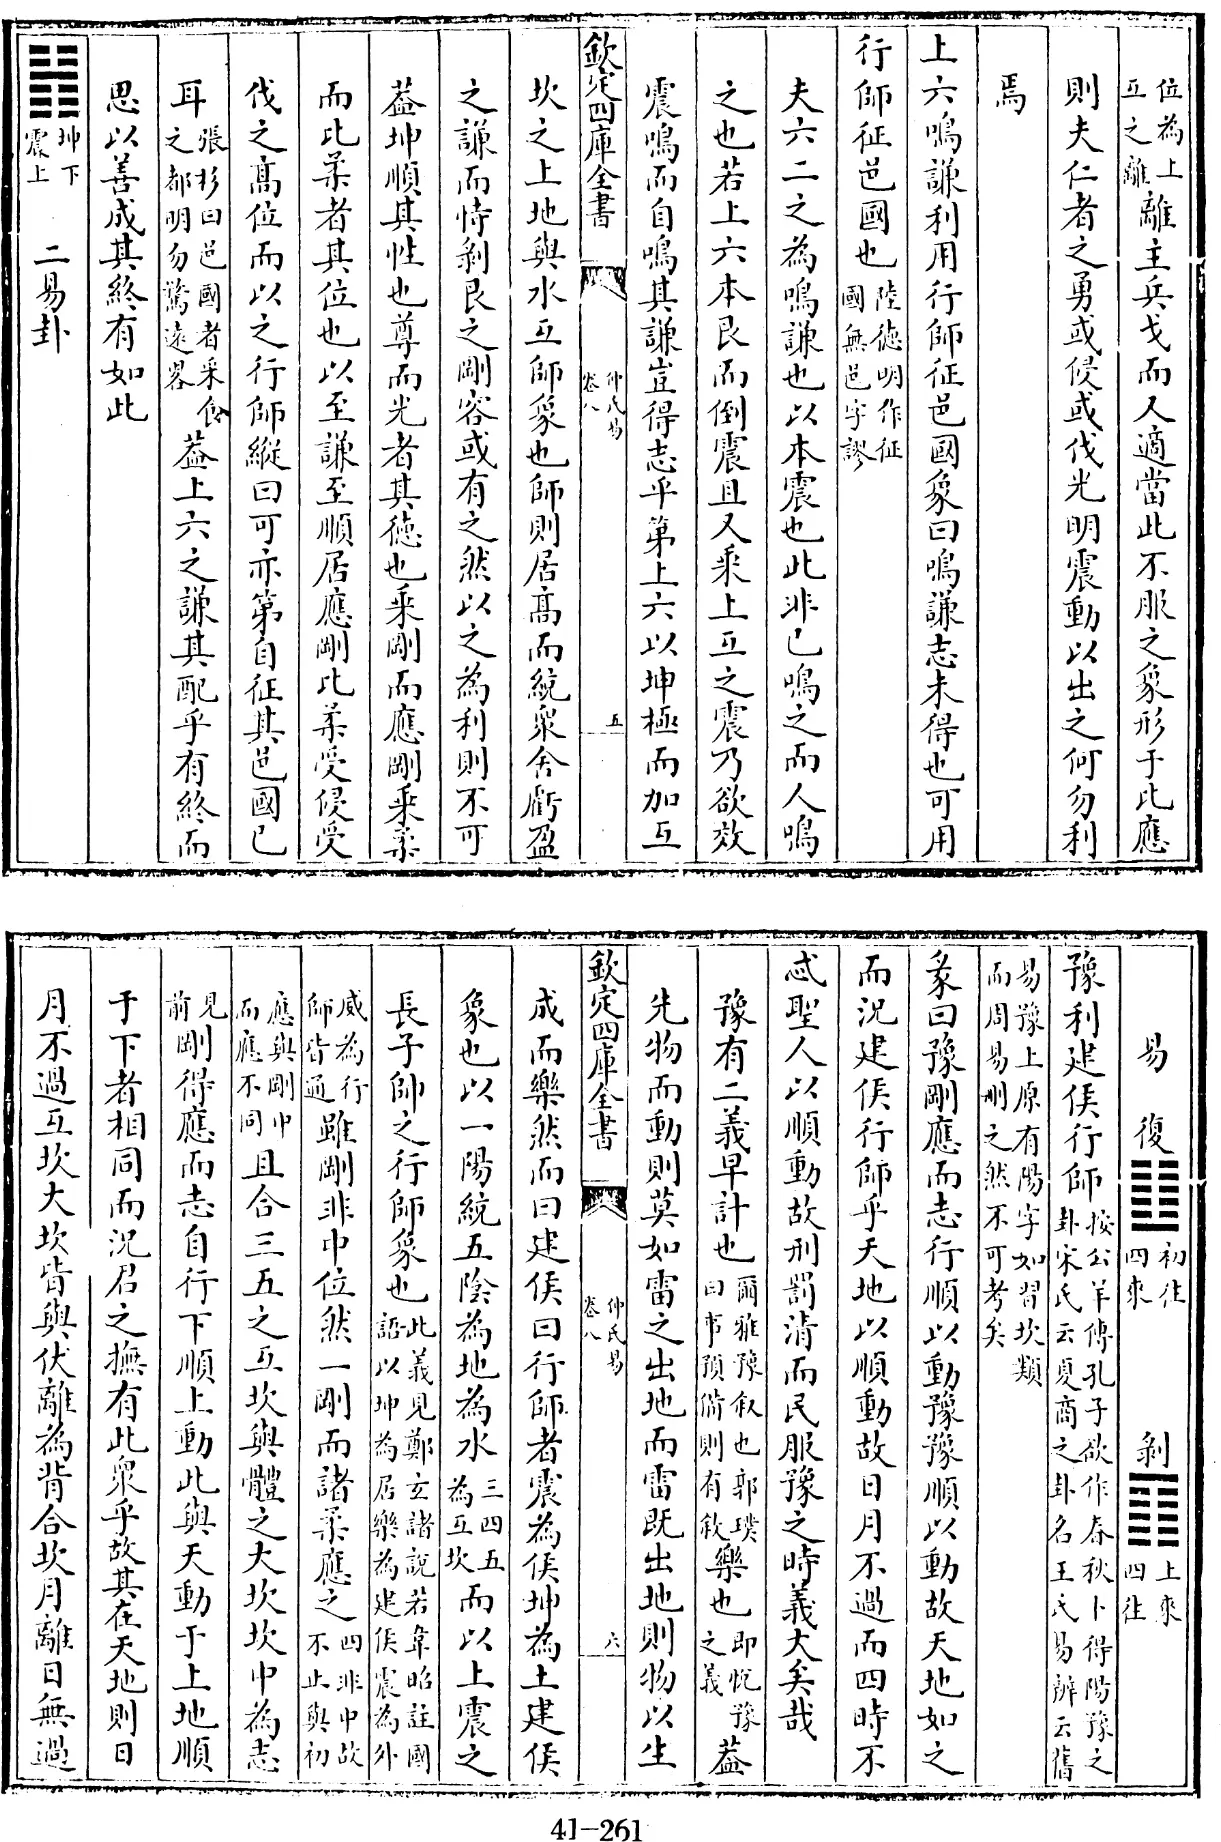 位為上互之離離主兵戈而人適當此不服之象形于此應
則夫仁者之勇或侵或伐光明震動以出之何勿利
焉
上六鳴謙利用行師征邑國象曰鳴謙志未得也可用
行師征邑國也陸德明作征國無邑字謬
夫六二之為鳴謙也以本震也此非已鳴之而人鳴
之也若上六本艮而倒震且又乘上互之震乃欲效
震鳴而自鳴其謙豈得志乎第上六以坤極而加互
欽定四庫全書
仲氏易
卷八
五
坎之上地與水互師象也師則居高而統衆舍虧盈
之謙而恃剝艮之剛容或有之然以之為利則不可
葢坤順其性也尊而光者其德也乘剛而應剛乘柔
而比柔者其位也以至謙至順居應剛比柔受侵受
伐之高位而以之行師縱曰可亦第自征其邑國已
耳張杉曰邑國者采食之都明勿驚遠畧葢上六之謙其配乎有終而
思以善成其終有如此
䷏坤下震上　二易卦
易　復䷗初往四來　剝䷖上來四往
豫利建侯行師按公羊傳孔子欲作春秋卜得陽豫之卦宋氏云夏商之卦名王氏易辨云舊
易豫上原有陽字如習坎類而周易刪之然不可考矣
彖曰豫剛應而志行順以動豫豫順以動故天地如之
而況建侯行師乎天地以順動故日月不過而四時不
忒聖人以順動故刑罰清而民服豫之時義大矣哉
豫有二義早計也爾雅豫叙也郭璞曰事預備則有敘樂也即悅豫之義葢
先物而動則莫如雷之出地而雷既出地則物以生
欽定四庫全書
仲氏易
卷八
六
成而樂然而曰建侯曰行師者震為侯坤為土建侯
象也以一陽統五陰為地為水三四五為互坎而以上震之
長子帥之行師象也此義見鄭玄諸說若韋昭註國語以坤為居樂為建侯震為外
威為行師皆通雖剛非中位然一剛而諸柔應之四非中故不止與初
應與剛中而應不同且合三五之互坎與體之大坎坎中為志
見前剛得應而志自行下順上動此與天動于上地順
于下者相同而況君之撫有此衆乎故其在天地則日
月不過互坎大坎皆與伏離為背合坎月離日無過
41-261